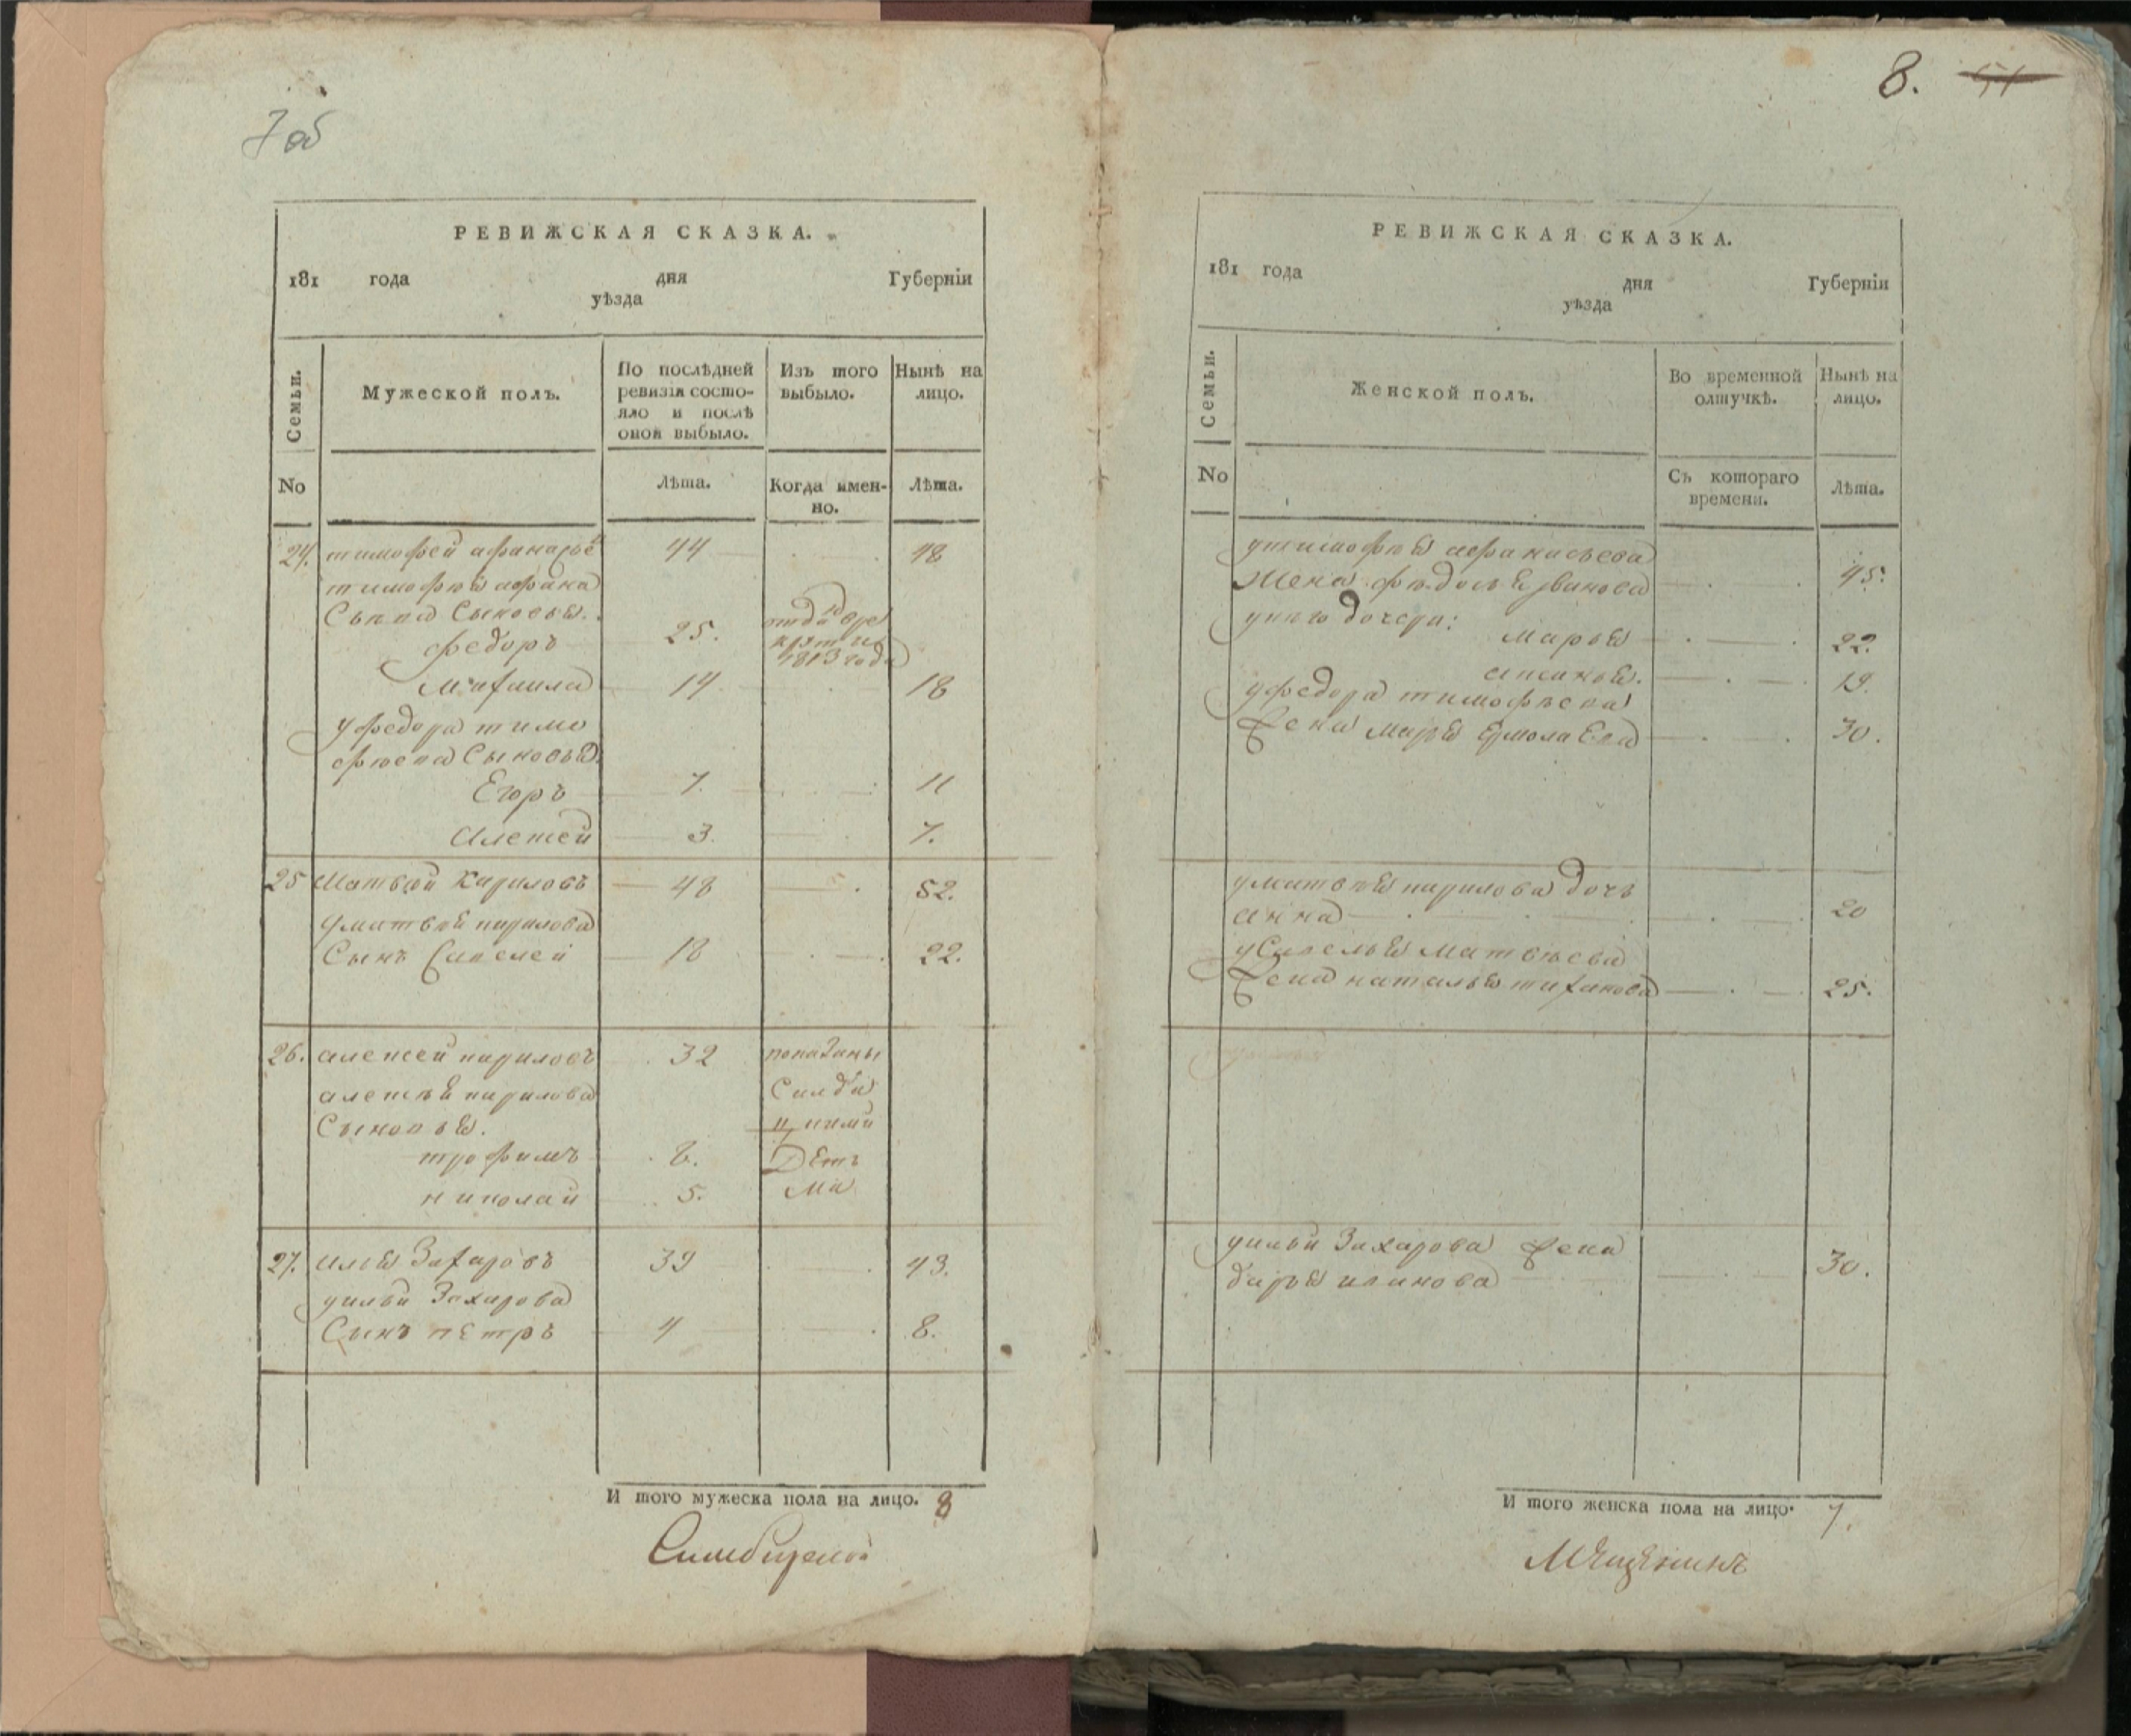 7 об
РЕВИЖСКАЯ СКАЗКА.
181 года дня Губернїи
уѣзда
Семьи.
Мужеской полъ.
По послѣдней ревизїи состо-
яло и послѣ оной выбыло.
Изъ того выбыло.
Нынѣ на лицо.
No
Лѣта.
Когда имен-
но.
Лѣта.
24. тимофей афанасьев 44 48
тимофѣя афана
сьева Сыновья.
федоръ 25. отдан в ре
круты
1813 года
Михаила 14 18
у федора тимо
фѣева Сыновья
Егоръ 7. 11
Алексей 3. 7.
25 Матвѣй Кириловъ 48 52.
у матвѣя кирилова
Сынъ Савелей 18 22.
26. алексей кириловъ 32 показаны
алексѣя кирилова
Сыновья.
трофимъ 8. Деть
николай 5. ми
27. илья Захаровъ 39 43.
у ильи Захарова
Сынъ пЕтръ 4 8.
И того мужеска пола на лицо. 8
Симбирской
8. 51
РЕВИЖСКАЯ СКАЗКА.
181 года дня Губернїи
уѣзда
Семьи.
Женской полъ.
Во временной
олтучкѣ.
Нынѣ на
лицо.
No
Съ котораго
времени.
Лѣта.
у тимофѣя афанасьева
Жена фѣдосья Иванова 45.
у него дочери:
Марья 22.
19.
у федора тимофѣева
Жена марья Ермолаева 30.
у матвѣя кирилова дочь
анна 20
у Савелья матвѣева
Жена наталья тиханова 25.
у ильи Захарова жена
дарья иванова 30.
И того женска пола на лицо. 7.
МЕщЕнинъ